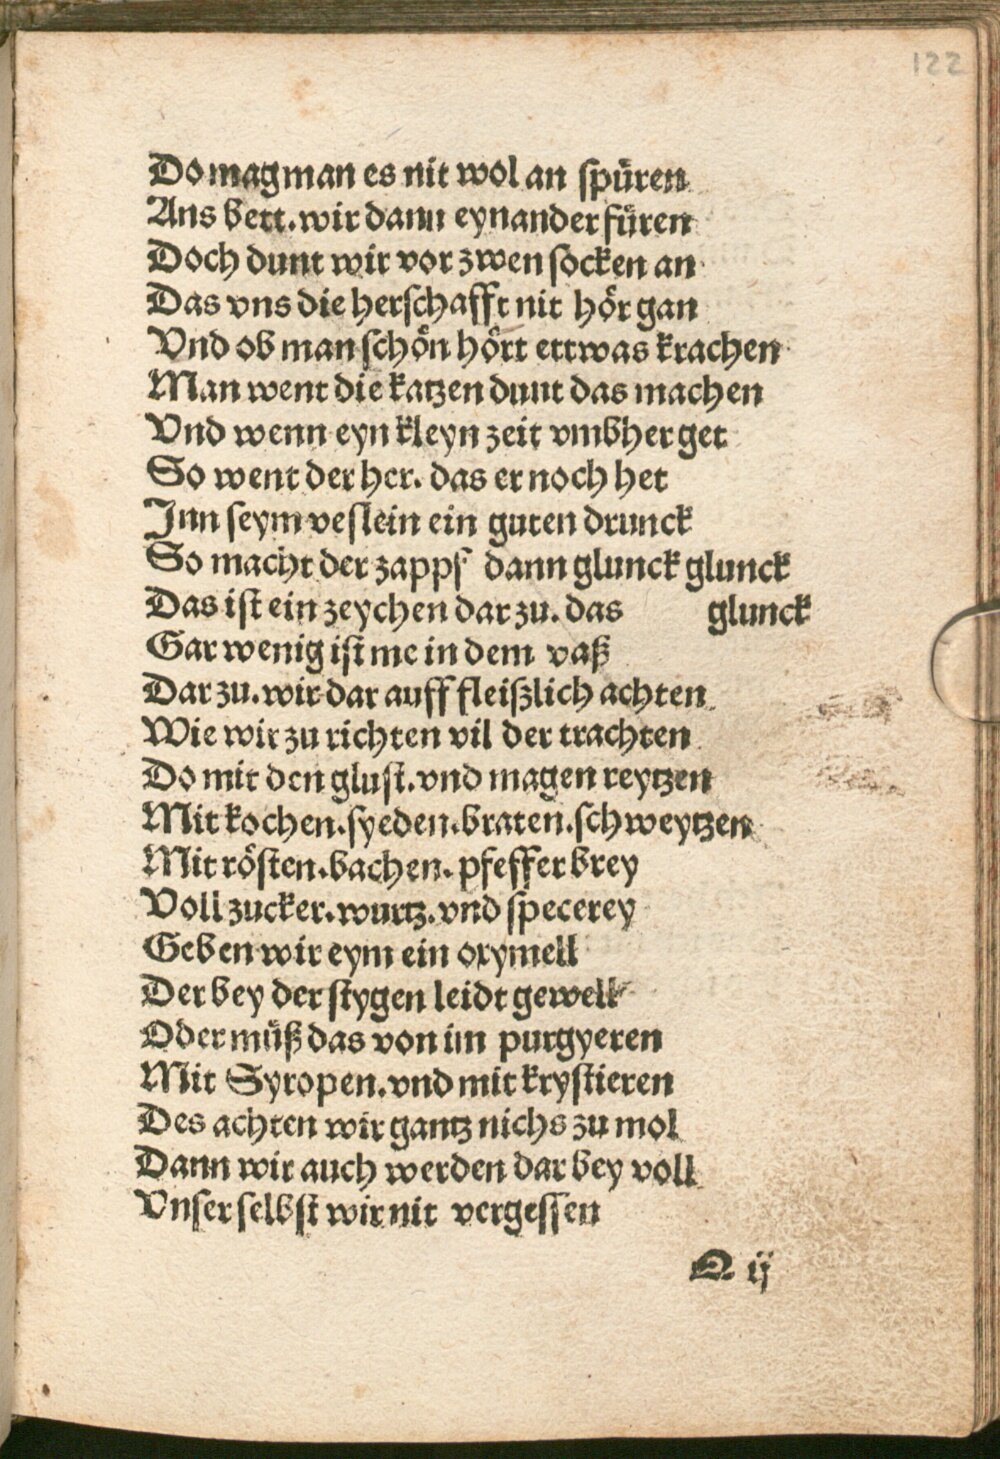 122
Do mag man es nit wol an spüren
Ans bett. wir dann eynander füren
Doch dunt wir vor zwen socken an
Das vns die herschafft nit hör gan
Vnd ob man schön hört ettwas krachen
Man went die katzen dunt das machen
Vnd wenn eyn kleyn zeit vmbher get
So went der her. das er noch het
Inn seym veslein ein guten drunck
So macht der zapps dann glunck glunck
Das ist ein zeychen dar zu. das glunck
Gar wenig ist me in dem vaß
Dar zu. wir dar auff fleißlich achten
Wie wir zu richten vil der trachten
Do mit den glust. vnd magen reytzen
Mit kochen. syeden. braten. schweytzen
Mit rösten. bachen. pfeffer brey
Voll zucker. wurtz. vnd specerey
Geben wir eym ein oxymell
Der bey der stygen leidt gewell
Oder müß das von im purgyeren
Mit Syropen. vnd mit krystieren
Des achten wir gantz nichs zu mol
Dann wir auch werden dar bey voll
Vnser selbst wir nit vergessen
Q ij